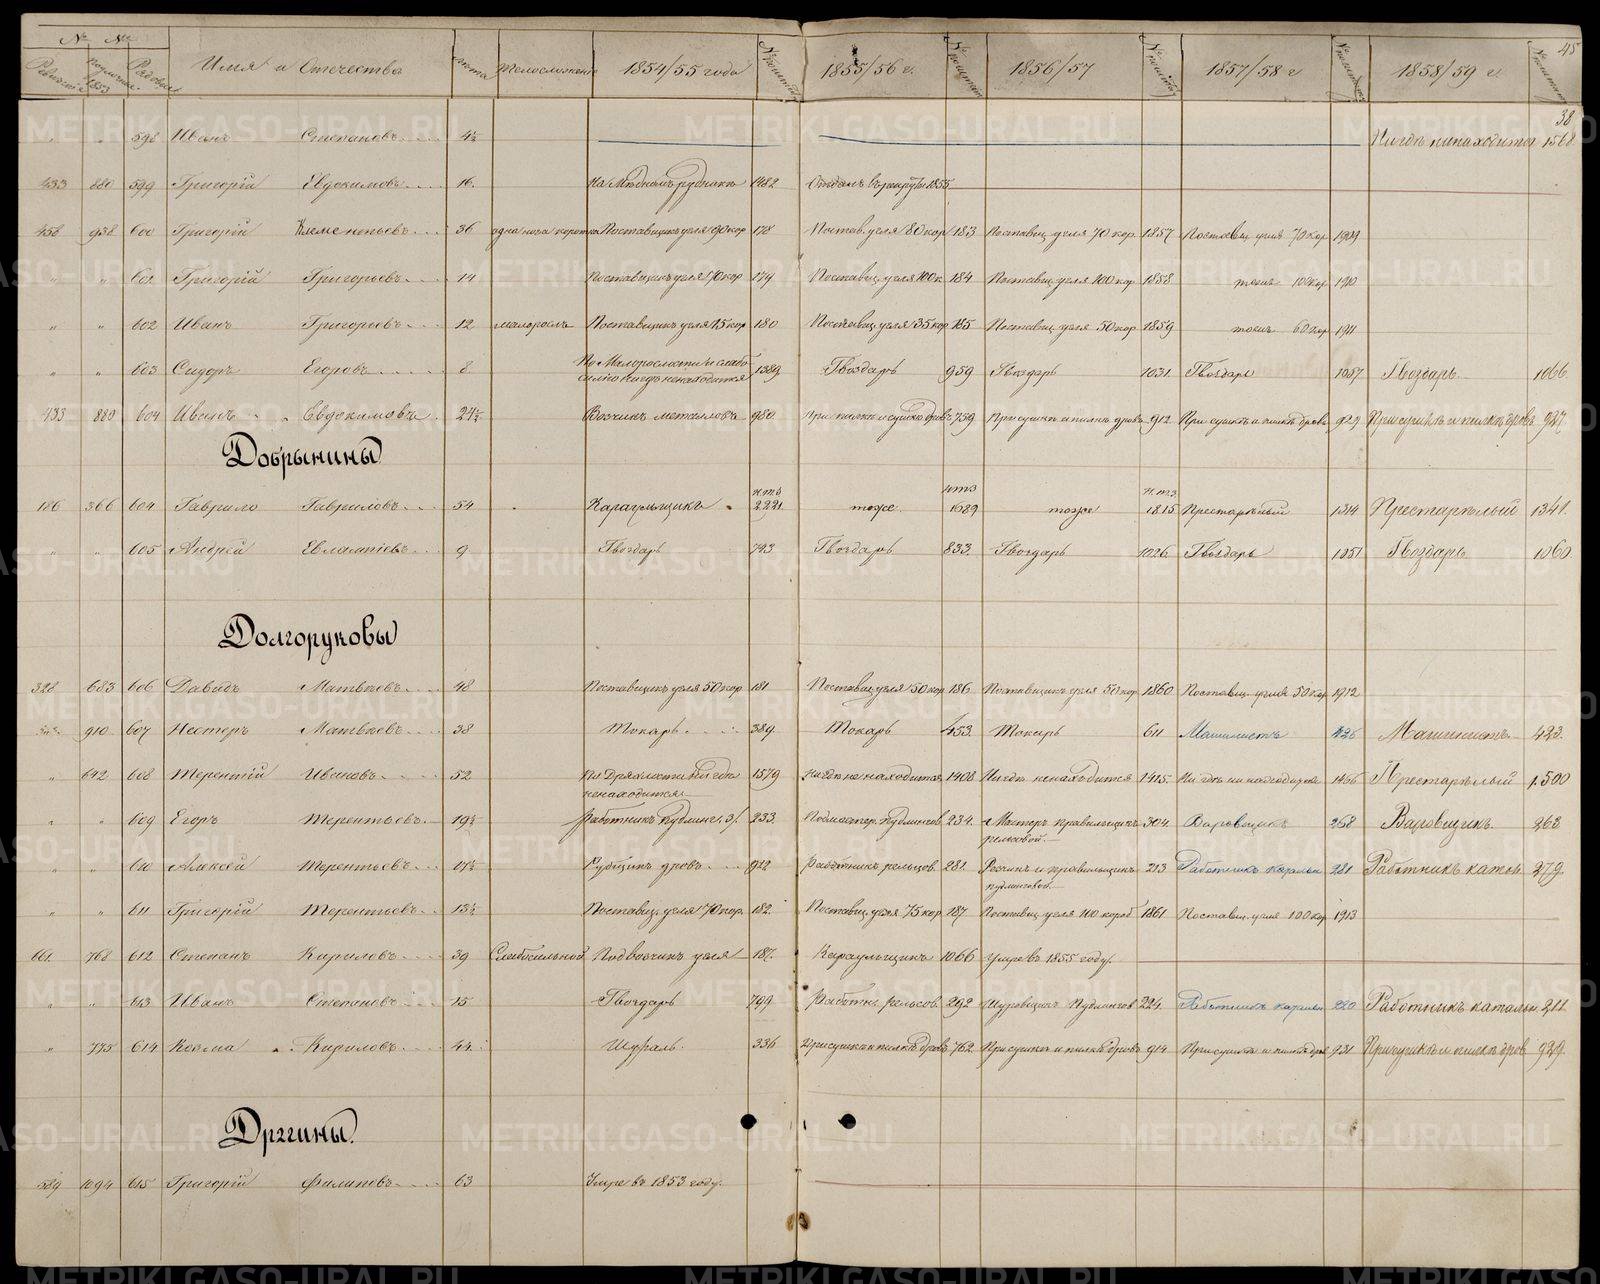 45
№ № Имя и Отечество лѣта Телосложение 1854/55 года 1855/56 г. 1856/57 1857/58 г 1858/59 г.
38
" " 598 Иванъ Степановъ 4½ Нигдѣ ненаходится 1568
433 880 599 Григорій Евдокимовъ 16. На Мѣдномъ рудникѣ 1482 Отданъ въ рекруты 1855
458 938 600 Григорій Клементьевъ 36 одна нога коротка Поставщикъ угля 90 кор 178 Постав. угля 80 кор 183 Поставщ угля 70 кор. 1857 Поставщ угля 70 кор 1909
" " 601 Григорій Григорьевъ 14 Поставщикъ угля 70 кор 179 Поставщ. угля 100 к 184 Поставщ. угля 100 кор 1858 тоже 100 кор 1910
" " 602 Иванъ Григорьевъ 12 малорослъ Поставщикъ угля 15 кор 180 Поставщ. угля 35 кор 185 Поставщ угля 50 кор. 1859 тоже 60 кор 1911
" " 603 Сидоръ Егоровъ 8 По Малорослости и слабосилію нигдѣ ненаходится 1389 Гвоздарь 959 Гвоздарь 1031. Гвоздарь 1057 Гвоздарь 1066
433 880 604 Иванъ Евдокимовъ 24½ Возчикъ металловъ 980. При пилкѣ и сушкѣ дровъ 759 При сушкѣ и пилкѣ дровъ 912 При сушкѣ и пилкѣ дровъ 929 При сушкѣ и пилкѣ дровъ 927
Добрынины
186 366 604 Гаврило Гавриловъ 54 Караульщикъ н.т.з 2221. тоже нтз 1689 тоже н.т.з. 1815 Престарѣлый 1314 Престарѣлый 1341.
" " 605 Андрей Евлампіевъ 9 Гвоздарь 793 Гвоздарь 833. Гвоздарь 1026 Гвоздарь 1051 Гвоздарь 1060
Долгоруковы
328 683 606 Давидъ Матвѣевъ 48 Поставщикъ угля 50 кор 181 Поставщ угля 50 кор. 186 Поставщикъ угля 50 кор. 1860 Поставщ. угля 50 кор 1912
910 607 Нестеръ Матвѣевъ 38 Токарь 389 Токарь 453. Токарь 611 Машинистъ 426 Машинистъ 423.
" 642 608 Терентій Ивановъ 52 По Дряхлости нигдѣ ненаходится 1579 Нигдѣ не находится 1408 Нигдѣ ненаходится 1415. Нигдѣ не находится 1466 Престарѣлый 1500
" " 609 Егоръ Терентьевъ 19½ Работникъ Пудлинг. з. 233. Подмастер. Пудлингов 234. Мастеръ правильщикъ рельсовой. 304. Варовщикъ 268 Варовщикъ 263
" " 610 Алексей Терентьевъ 17½ Рубщикъ дровъ 922 Работникъ рельсов. 281. Рѣзчикъ и правильщикъ пудлинговой. 213 Работникъ катальн 281 Работникъ катал. 279.
" " 611 Григорій Терентьевъ 13½ Поставщ. угля 70 кор. 182. Поставщ. угля 75 кор 187 Поставщ угля 100 короб 1861 Поставщ. угля 100 кор 1913
661. 768 612 Степанъ Кириловъ 39 Слабосильной Подвозчикъ угля 187. Караульщикъ 1066 Умре въ 1855 году.
" " 613 Иванъ Степановъ 15 Гвоздарь 799 Работн. рельсов. 292 Шуровщикъ Пудлингов 224. Работникъ катальн 220 Работникъ катальн. 211
" 775 614 Козма Кириловъ 44. Шураль. 336 При сушкѣ и пилкѣ дровъ 762 При сушкѣ и пилкѣ дровъ 914 При сушкѣ и пилкѣ дров 931 При сушкѣ и пилкѣ дров 929.
Дрягины.
589 1094 615 Григорій Филиповъ 63 Умре въ 1853 году.